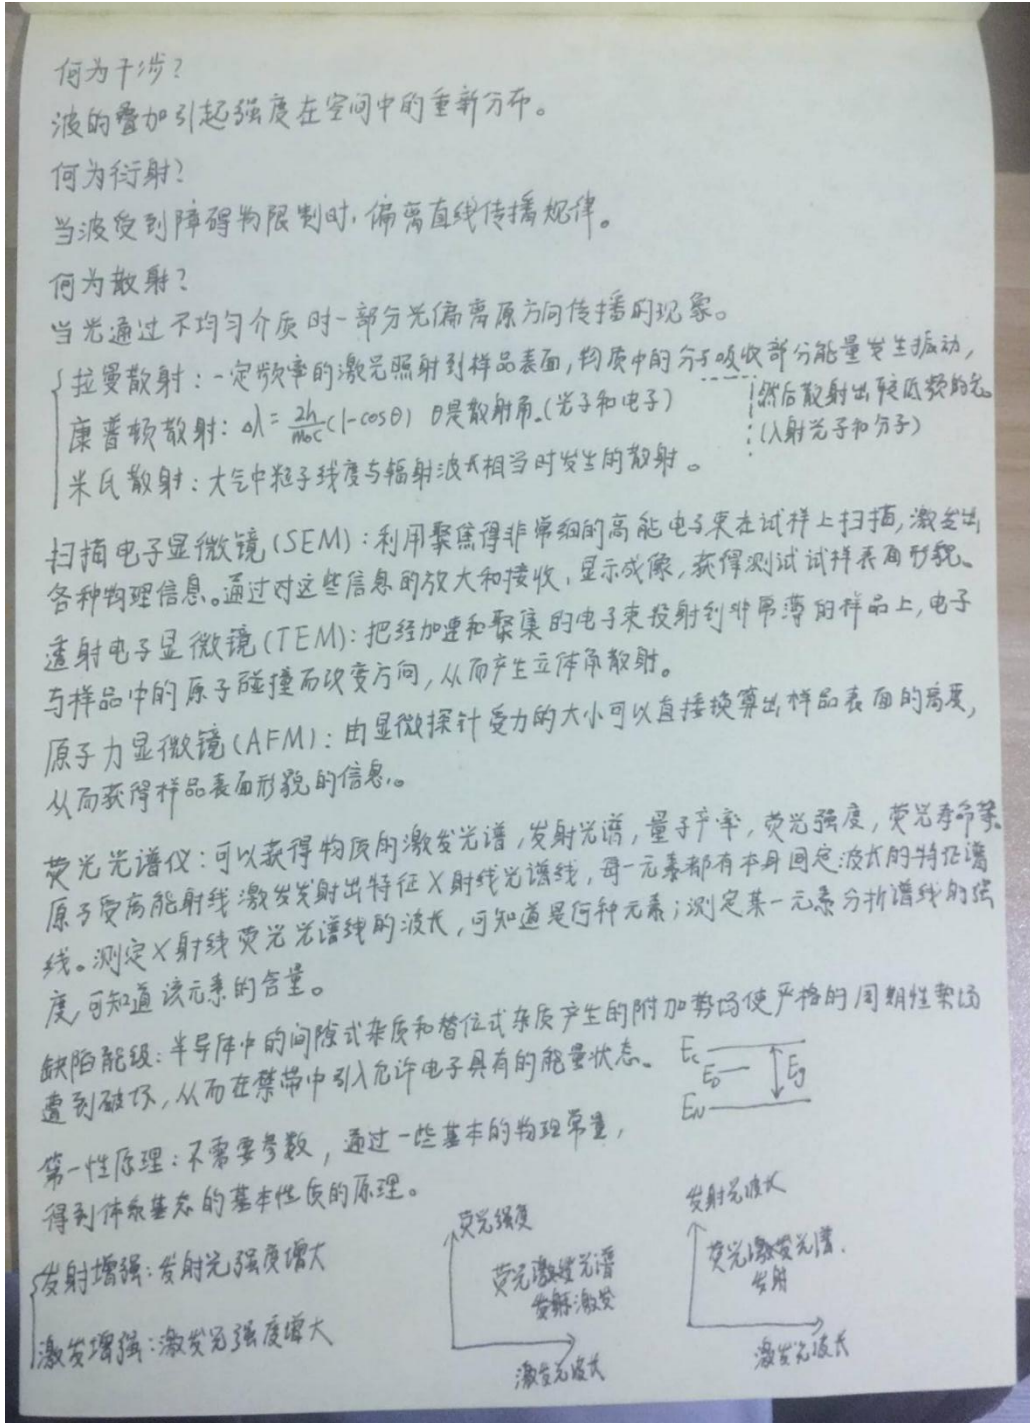 何为干涉?
波的叠加引起强度在空间中的重新分布。
何为衍射?
当波受到障碍物限制时,偏离直线传播规律。
何为散射?
当光通过不均匀介质时一部分光偏离原方向传播的现象。
拉曼散射:一定频率的激光照射到样品表面,物质中的分子吸收部分能量发生振动,
然后散射出较低频的光。
康普顿散射:Δλ=2h/m₀c(1-cosθ) θ是散射角.(光子和电子)
(入射光子和分子)
米氏散射:大气中粒子线度与辐射波长相当时发生的散射。
扫描电子显微镜(SEM):利用聚焦得非常细的高能电子束在试样上扫描,激发出
各种物理信息。通过对这些信息的放大和接收,显示成像,获得测试试样表面形貌。
透射电子显微镜(TEM):把经加速和聚集的电子束投射到非常薄的样品上,电子
与样品中的原子碰撞而改变方向,从而产生立体角散射。
原子力显微镜(AFM):由显微探针受力的大小可以直接换算出样品表面的高度,
从而获得样品表面形貌的信息。
荧光光谱仪:可以获得物质的激发光谱,发射光谱,量子产率,荧光强度,荧光寿命等。
原子受高能射线激发发射出特征X射线光谱线,每一元素都有本身固定波长的特征谱
线。测定X射线荧光光谱线的波长,可知道是何种元素;测定某一元素分析谱线的强
度,可知道该元素的含量。
缺陷能级:半导体中的间隙式杂质和替位式杂质产生的附加势场使严格的周期性势场
遭到破坏,从而在禁带中引入允许电子具有的能量状态。
Ec
ED
Eg
EV
第一性原理:不需要参数,通过一些基本的物理常量,
得到体系基态的基本性质的原理。
发射增强:发射光强度增大
激发增强:激发光强度增大
荧光强度
荧光光谱
激发
激发光波长
发射光波长
荧光光谱.
发射
激发光波长